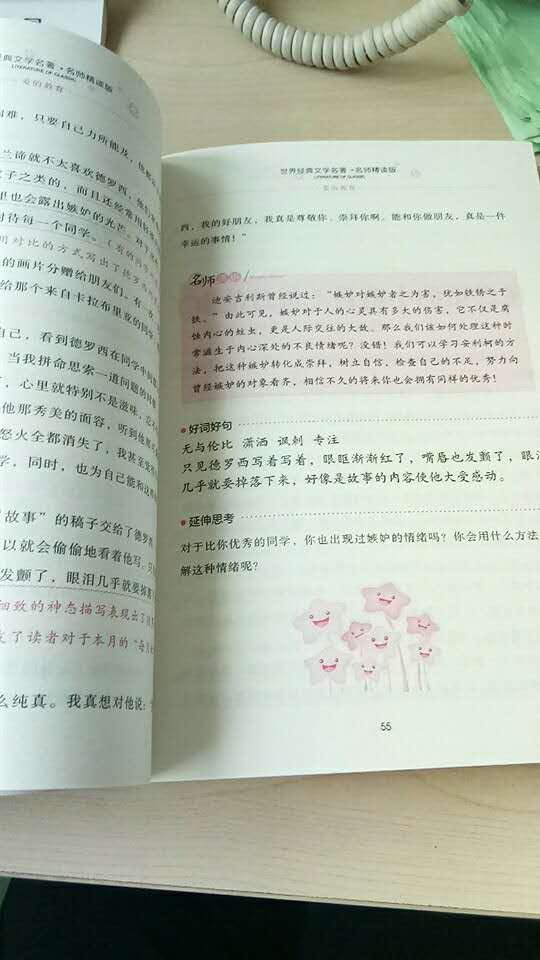 经典文学名著·名师精读版
LITERATURE OF CLASSIC
爱的教育
困难，只要自己力所能及，他
兰谛就不太喜欢德罗西，他
子之类的，而且还经常用
里也会露出嫉妒的光芒。对于
对待每一个同学。（有的
用对比的方式写出了德罗西
的画片分赠给朋友们。有一次
给那个来自卡拉布里亚的同学
自己，看到德罗西在同学中
当我拼命思索一道问题的时候
了，心里就特别不是滋味，
他那秀美的面容，听到他那
怒火全都消失了，我甚至觉得
学，同时，也为自己能和这样
故事”的稿子交给了德罗西
以就会偷偷地看着他写。只
发颤了，眼泪几乎就要掉落
细致的神态描写表现出了
发了读者对于本月的“每月
么纯真。我真想对他说：
世界经典文学名著·名师精读版
LITERATURE OF CLASSIC
爱的教育
西，我的好朋友，我真是尊敬你、崇拜你啊。能和你做朋友，真是一件
幸运的事情！”
名师点评
迪安吉利斯曾经说过：“嫉妒对嫉妒者之为害，犹如铁锈之于
铁。”由此可见，嫉妒对于人的心灵具有多大的伤害，它不仅是腐
蚀内心的蛀虫，更是人际交往的大敌。那么我们该如何处理这种时
常滋生于内心深处的不良情绪呢？没错！我们可以学习安利柯的方
法，把这种嫉妒转化成崇拜，树立自信，检查自己的不足，努力向
曾经嫉妒的对象看齐，相信不久的将来你也会拥有同样的优秀！
好词好句
无与伦比 潇洒 讽刺 专注
只见德罗西写着写着，眼眶渐渐红了，嘴唇也发颤了，眼泪
几乎就要掉落下来，好像是故事的内容使他大受感动。
延伸思考
对于比你优秀的同学，你也出现过嫉妒的情绪吗？你会用什么方法
解这种情绪呢？
55